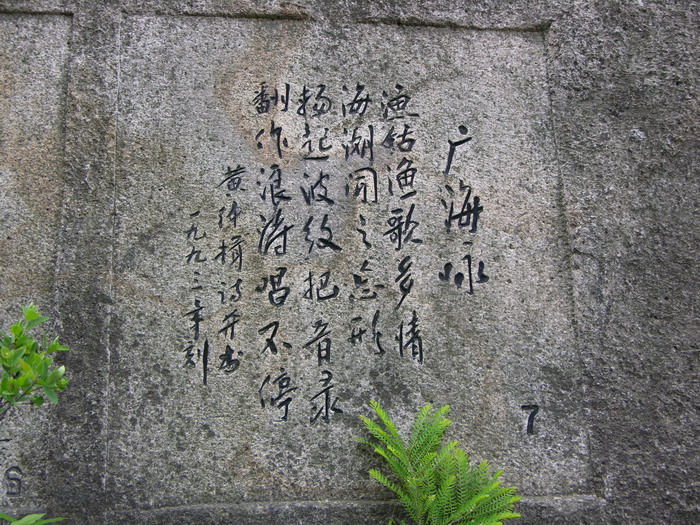 广海咏
渔姑渔歌多情
海湖闻之忘形
扬起波纹把音录
翻作浪涛唱不停
黄仲楫诗并书
一九九三年刻
7
S